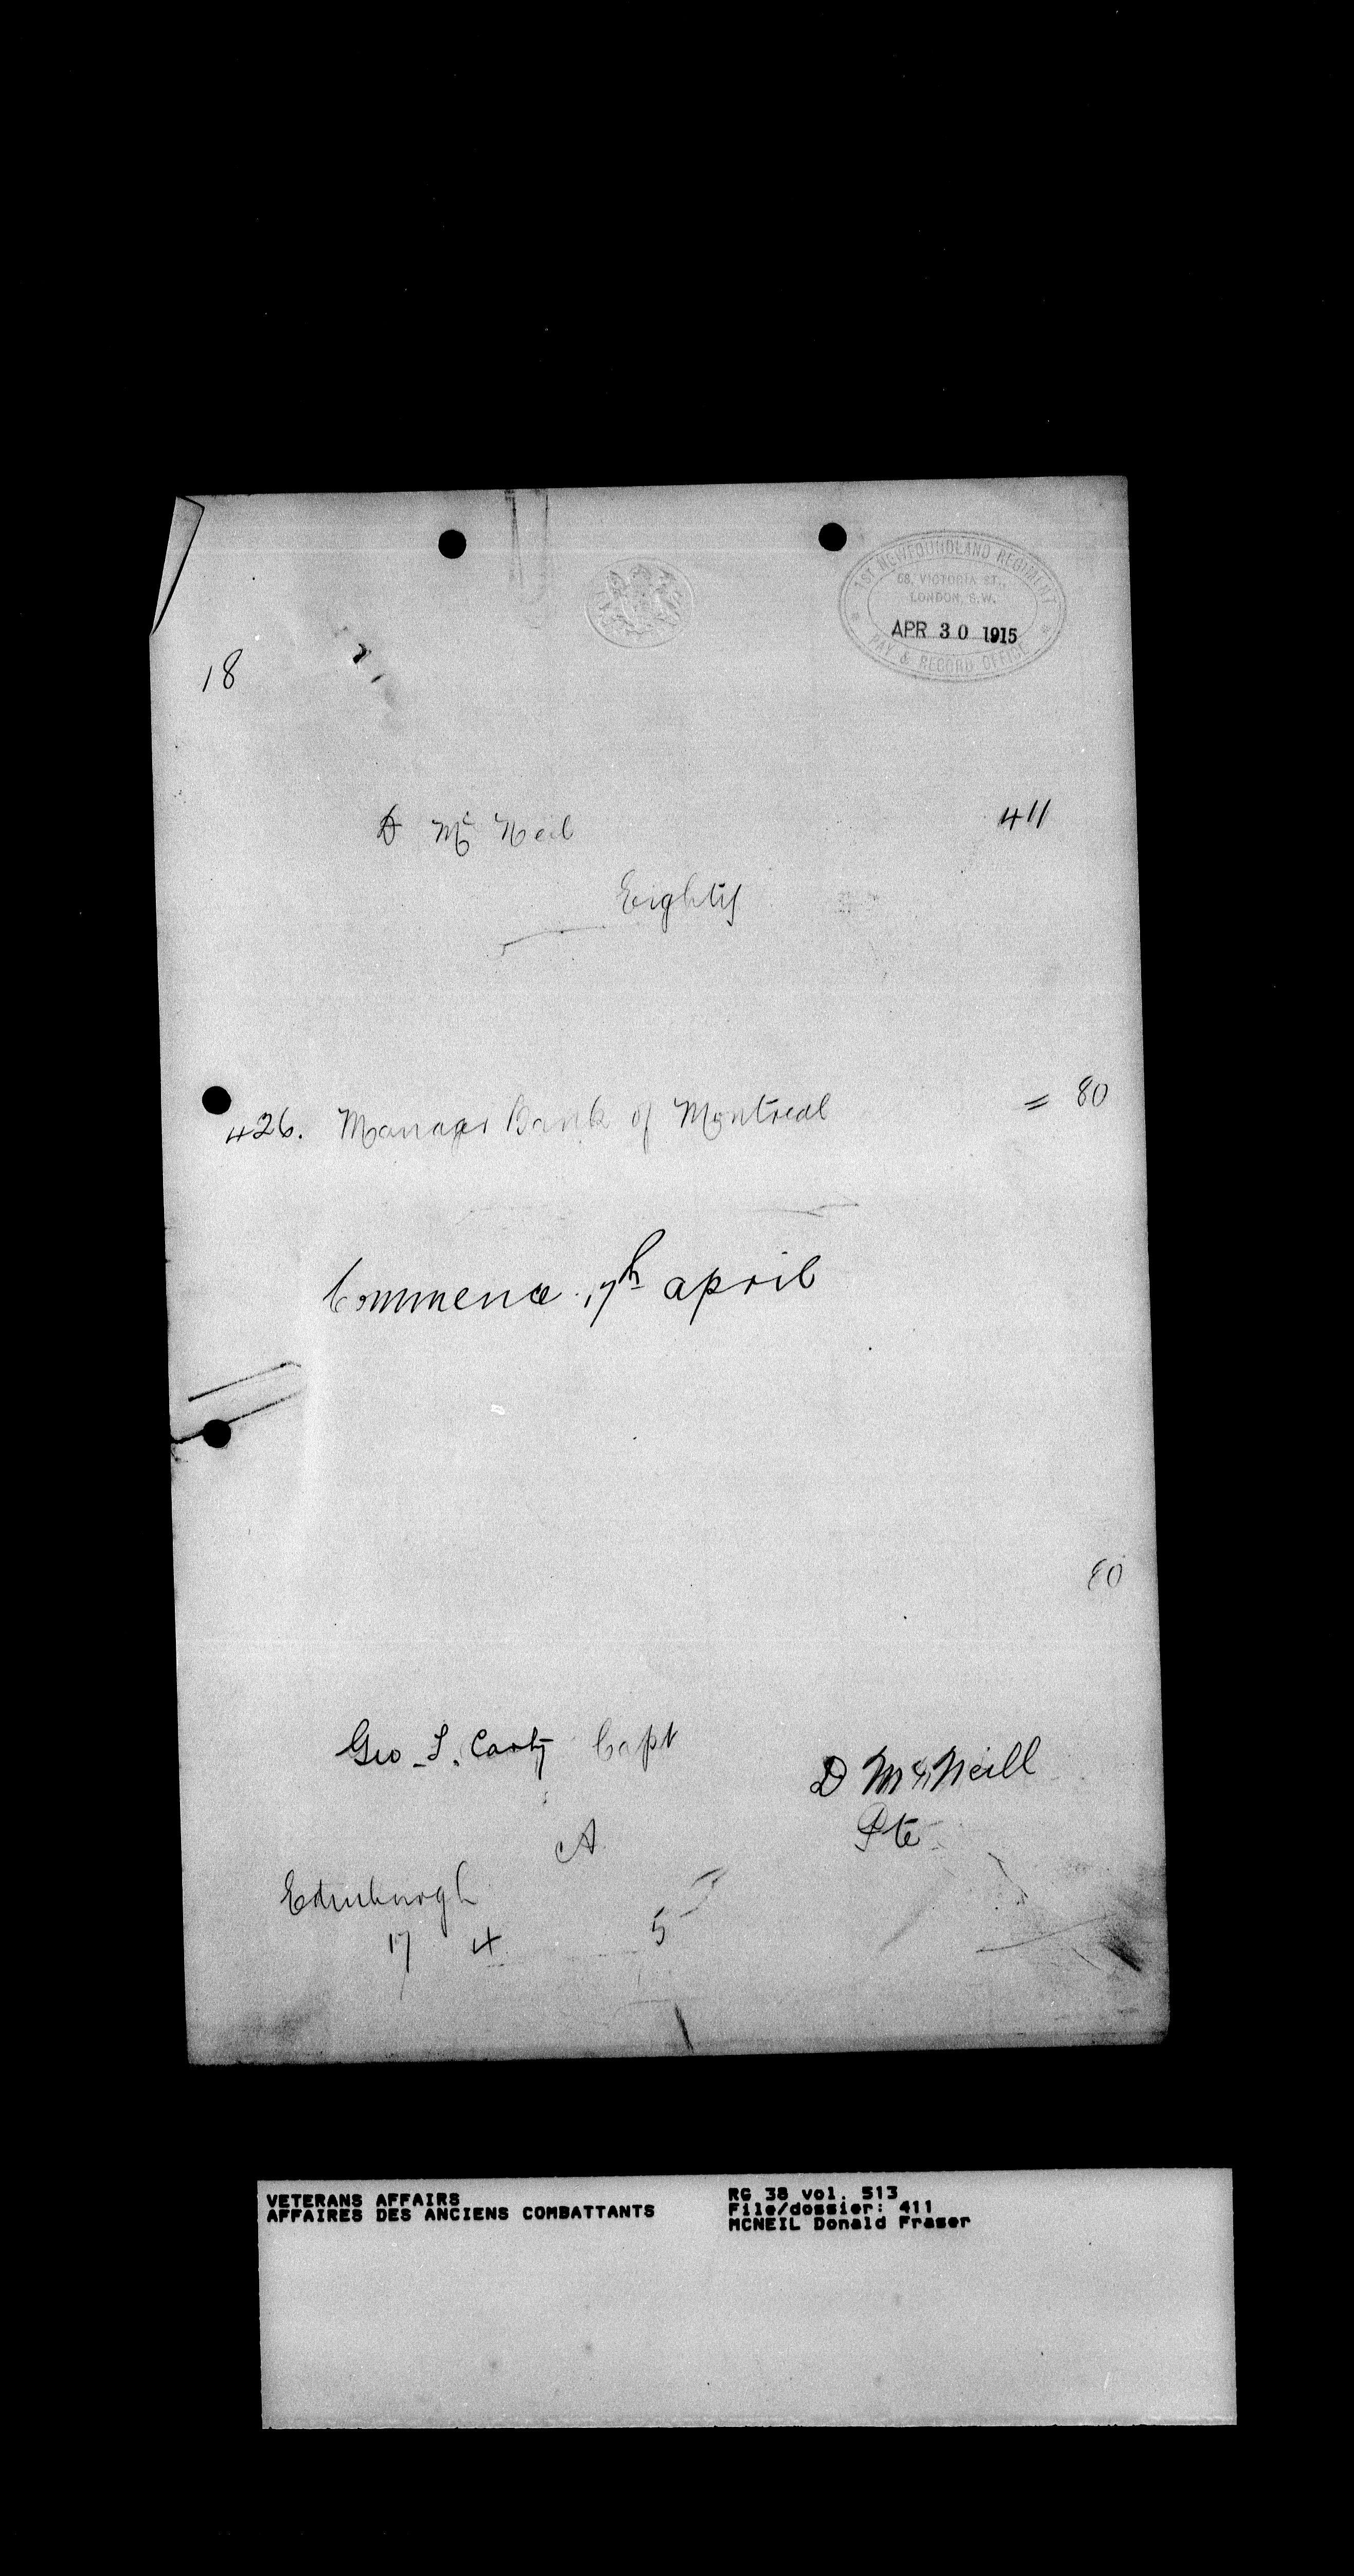 1ST NEWFOUNDLAND REGIMENT
68, VICTORIA ST.,
LONDON, S.W.
APR 30 1915
PAY & RECORD OFFICE
18
D Mc Neil 411
Eighty
426. Manager Bank of Montreal = 80
Commence 17th april
80
Geo. T. Carty Capt
D McNeill
Pte
A
Edinburgh
17 4 5
VETERANS AFFAIRS
AFFAIRES DES ANCIENS COMBATTANTS
RG 38 vol. 513
File/dossier: 411
MCNEIL Donald Fraser